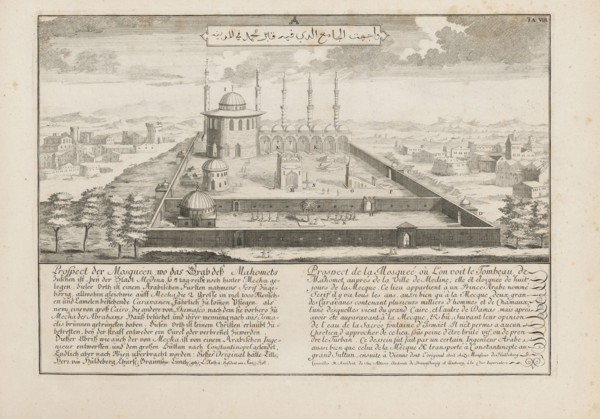 A
TA. VIII.
Prospect der Mosqueen, wo das Grab deß Mahomets
zusehen ist, bey der Stadt Medina, so 8 tagreiß noch hinter Mecha ge-
legen. Dieser Orth ist einem Arabischen Fürsten nahmens Serif
hörig, allwohin gleichwie auff Mecha die 2 Große in viel 1000 Mensch-
en und Camelen bestehende Caravanen, Jährlich zu kommen pflegen, als
nem, eine von groß Cairo, die andere von Damasco, nach dem sie vorhero zu
Mecha des Abrahams Hauß besuchet und ihrer meinung nach aus Isma-
elis brünnen getruncken haben. Diesen Orth ist keinem Christen erlaubt zu
betretten, bey der Straff entweder ein Türck oder verbrennt zuwerden.
Dieser Abriß wie auch der von Mecha ist von einem Arabischen Inge-
nieur entworffen, und dem großen Sultan nach Constantinopel gesendet,
Endlich aber nach Wien überbracht worden. Dieses Original hatte Titl:
Herr von
Prospect de la Mosquée, où L'on voit le Tombeau de
Mahomet, auprès de la Ville de Medine, elle est éloignée de huit
jours de la Mecque. Ce lieu appartient a un Prince Arabe nommé
Serif, il y va tous les ans, aussi bien qu'à la Mecque, deux gran-
des Caravanes contenant plusieurs milliers d'hommes et de Chameaux,
l'une desquelles vient du grand Caire, et l'autre de Damas, mais apres
avoir été auparavant à la Mecque, & bû, suivant leur opinion
de l'eau de la Sacrée fontaine d'Ismael. Il n'est permis a aucun
Chretien d'approcher de ce lieu, sous peine d'être brulé vif, ou de pren-
dre le Turban. Ce dessein fut fait par un certain Ingenieur Arabe
aussi bien que celui de la Mecque & transporté à Constantinople au
grand Sultan, ensuite à Vienne dont l'original étoit chez Monsieur de